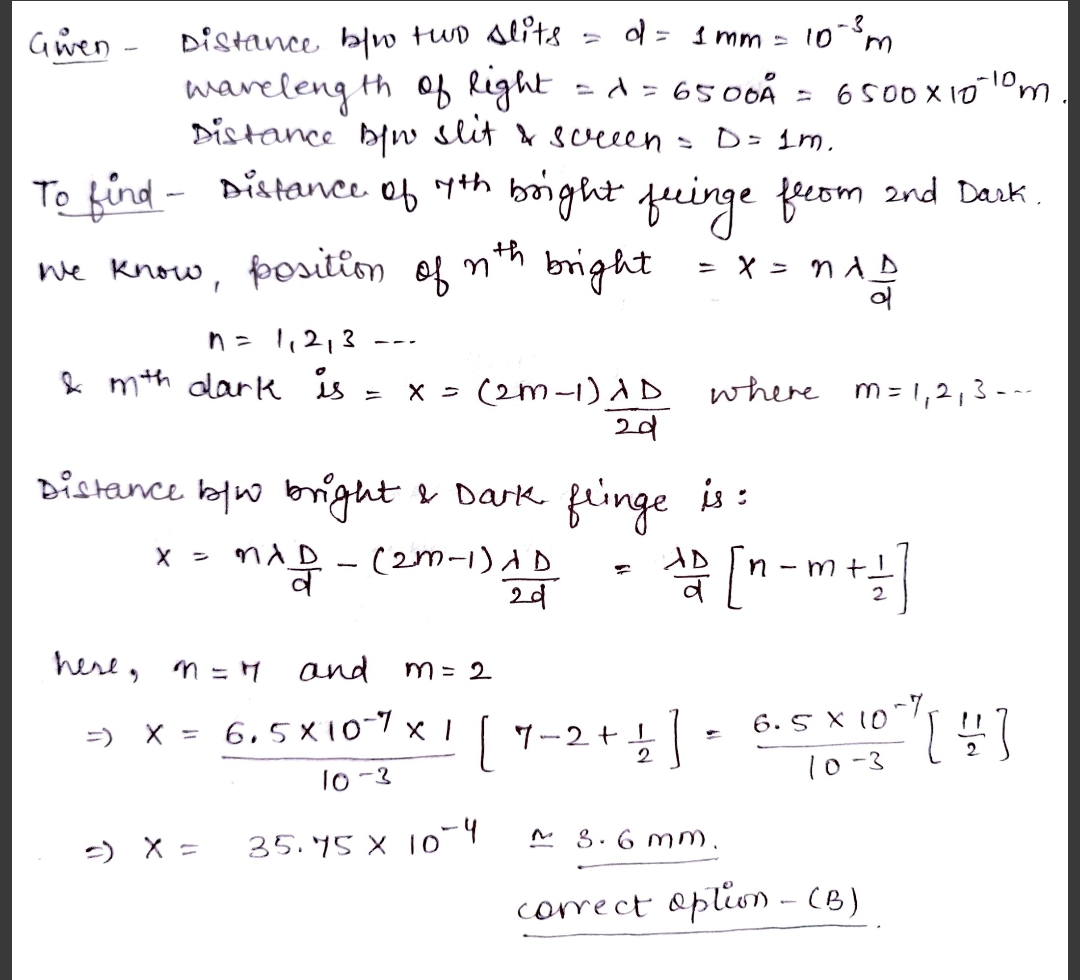 Given - Distance b/w two slits = d = 1 mm = 10⁻³ m
wavelength of light = λ = 6500Å = 6500 × 10⁻¹⁰ m.
Distance b/w slit & screen = D = 1m.
To find - Distance of 7th bright fringe from 2nd Dark.
we know, position of nᵗʰ bright = x = nλD/d
n = 1,2,3 ---
& mth dark is = x = (2m-1) λD/2d where m = 1,2,3 ---
Distance b/w bright & Dark fringe is :
x = nλD/d - (2m-1) λD/2d = λD/d [n - m + 1/2]
here, n = 7 and m = 2
=) x = 6.5 × 10⁻⁷ × 1/10⁻³ [7-2+1/2] = 6.5 × 10⁻⁷/10⁻³ [11/2]
=) x = 35.75 × 10⁻⁴ ≃ 3.6 mm.
correct option - (B).